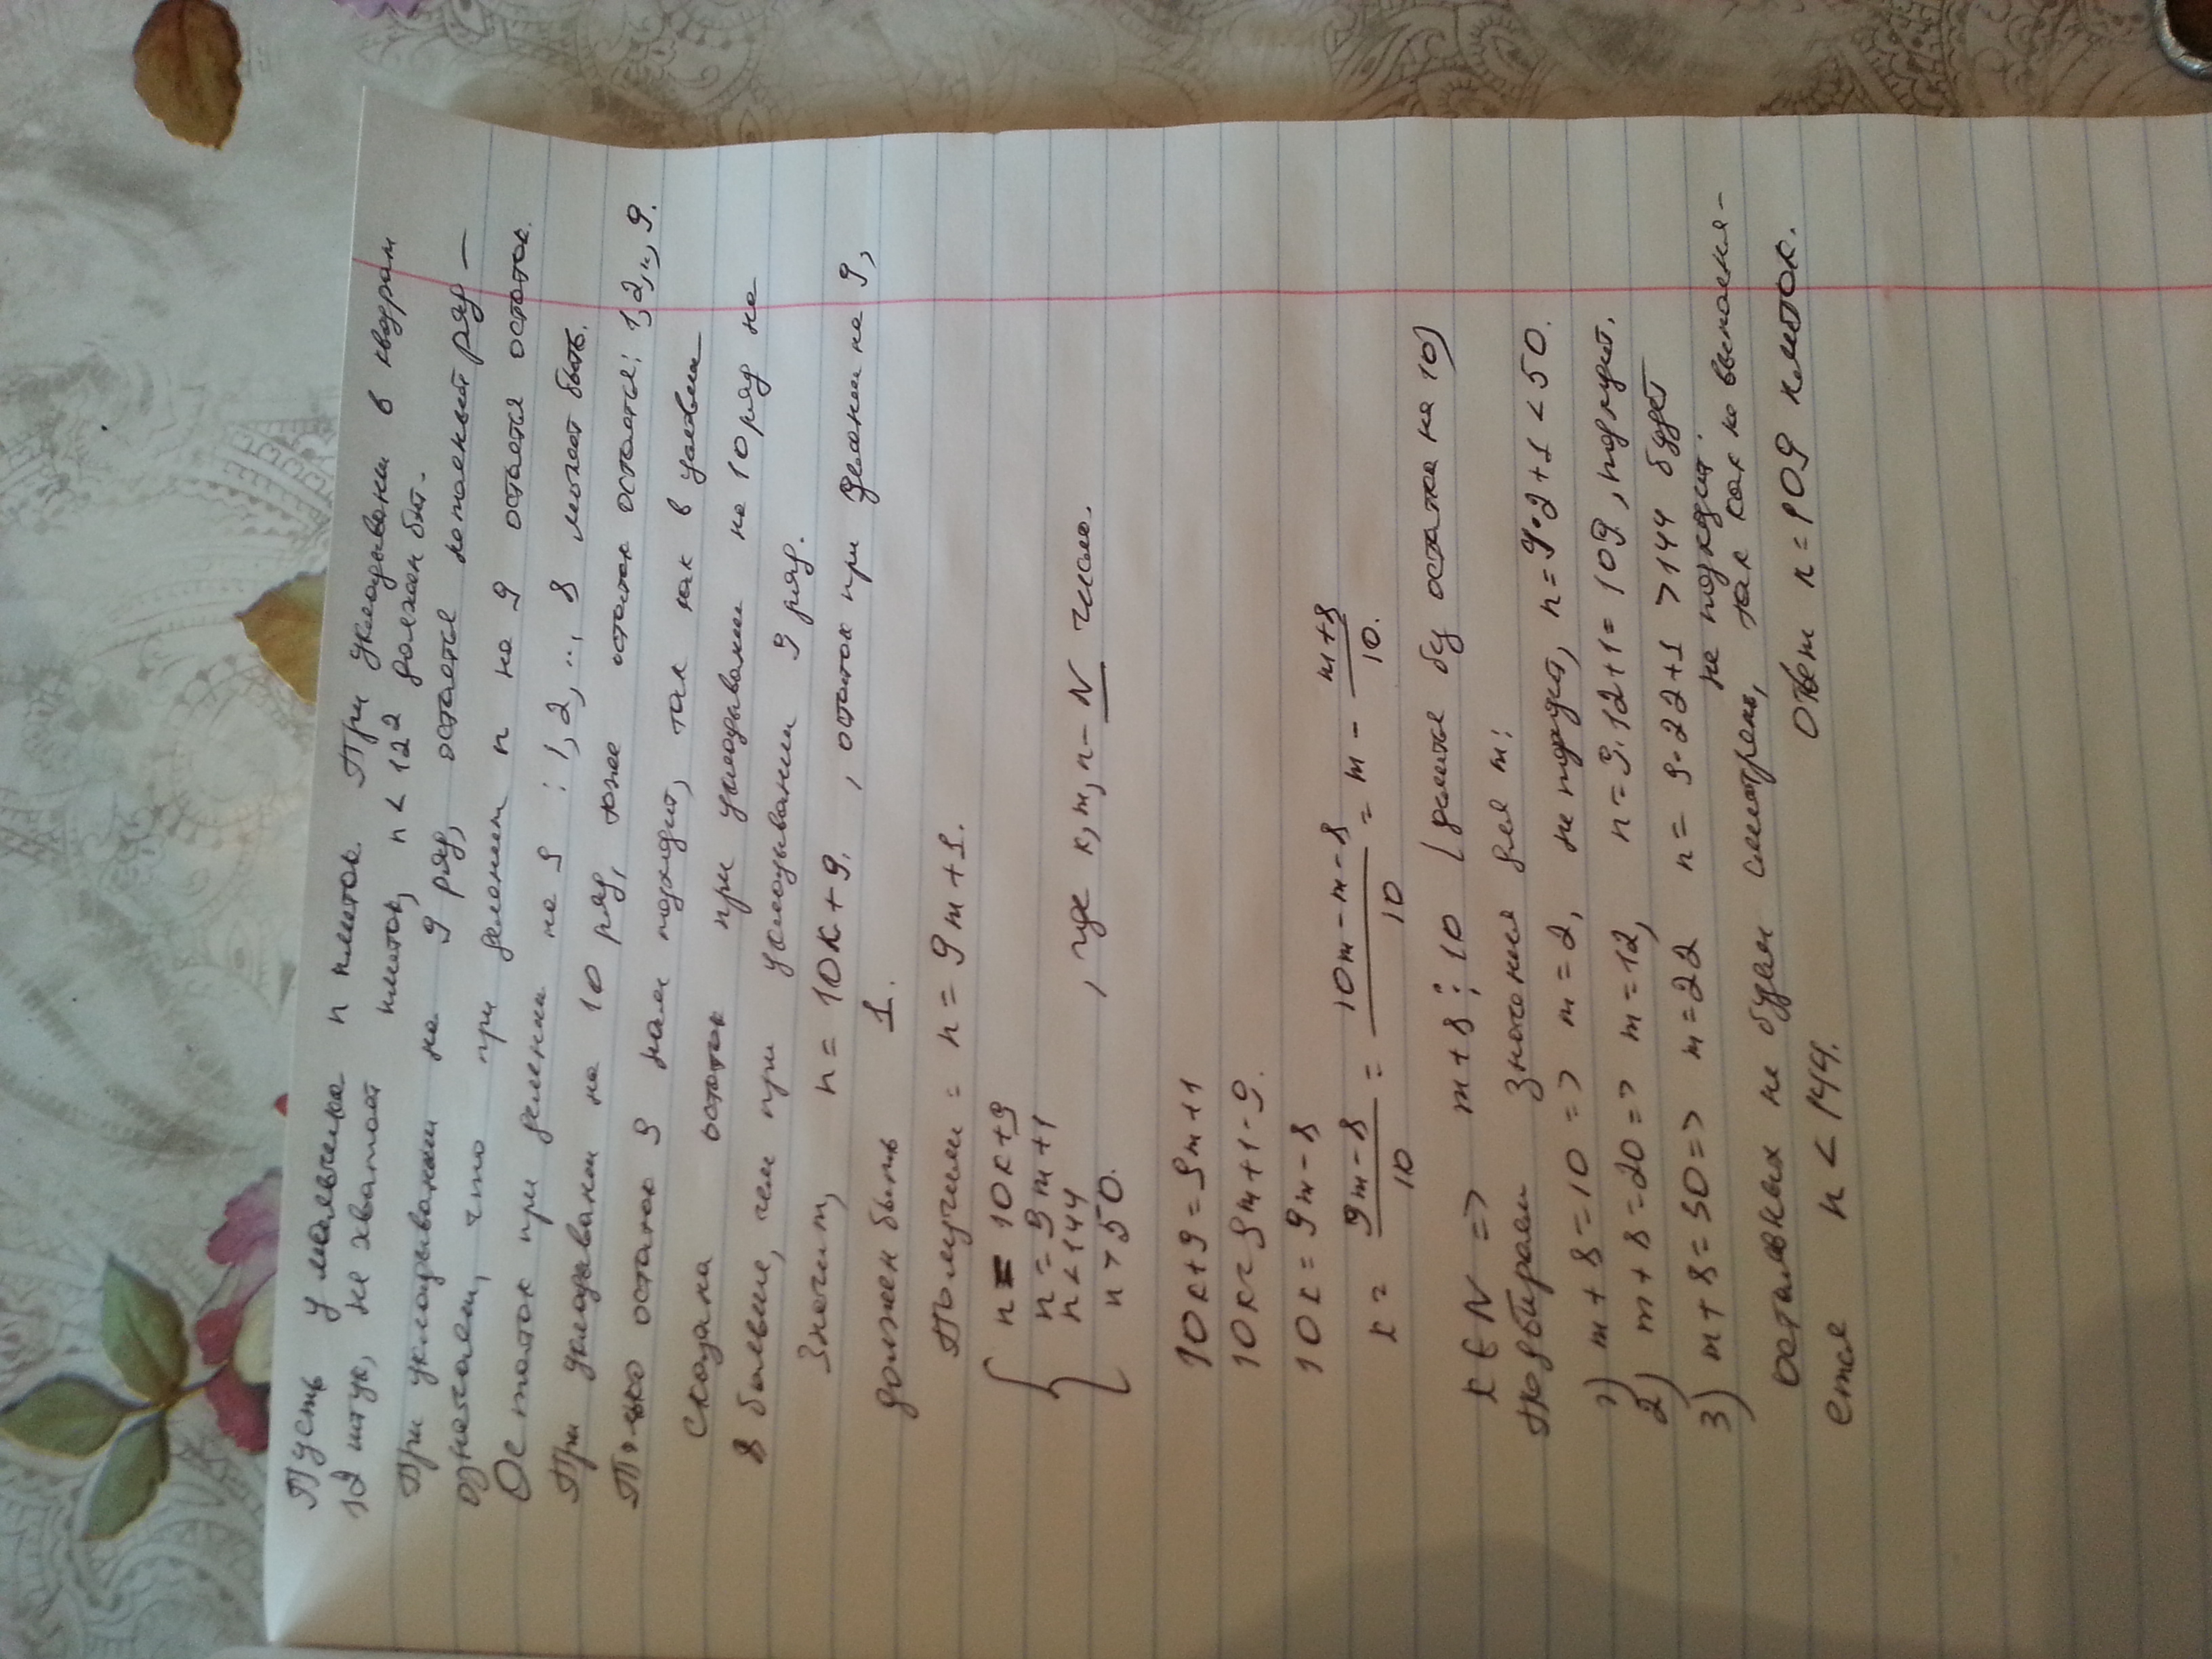 Пусть у мальчика n плиток. При укладывани в квадрат
12 штук, не хватает плиток, n < 12² должен быт.
При укладывании на 9 ряд, остается неполный ряд –
означаем, что при делении n на 9 остается остаток.
Остаток при делении на 9 : 1, 2, .., 8 может быть.
При укладывани на 10 ряд, тоже остаток остается: 1, 2, .., 9.
Только остаток 9 нам подходит, так как в условии
сказана остаток при укладывании на 10 ряд на
8 больше, чем при укладывании 9 ряд.
Значит, n = 10k + 9. , остаток при делении на 9,
должен быть 1.
Получим: n = 9m + 1.
n = 10k + 9
n = 9m + 1
n < 144
n > 50. , где k, m, n – N число.
10k + 9 = 9m + 1
10k = 9m + 1 - 9.
10k = 9m - 8
k = 9m - 8 / 10 = 10m - m - 8 / 10 = m - m + 8 / 10.
k ∈ N => m + 8 ⋮ 10 (делится без остатка на 10)
Подбираем значения для m:
1) m + 8 = 10 => m = 2, не подход, n = 9·2 + 1 < 50.
2) m + 8 = 20 => m = 12, n = 9·12 + 1 = 109, подходит.
3) m + 8 = 30 => m = 22 n = 9·22 + 1 > 144 будет
не подходит.
остальных не будем смотреть, так как не выполня-
ется n < 144. Ответ n = 109 плиток.